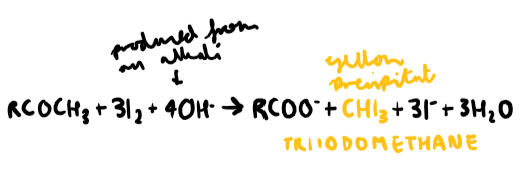 produced from
an alkali
↓
yellow
precipitate
RCOCH₃ + 3I₂ + 4OH⁻ → RCOO⁻ + CHI₃ + 3I⁻ + 3H₂O
TRIIODOMETHANE